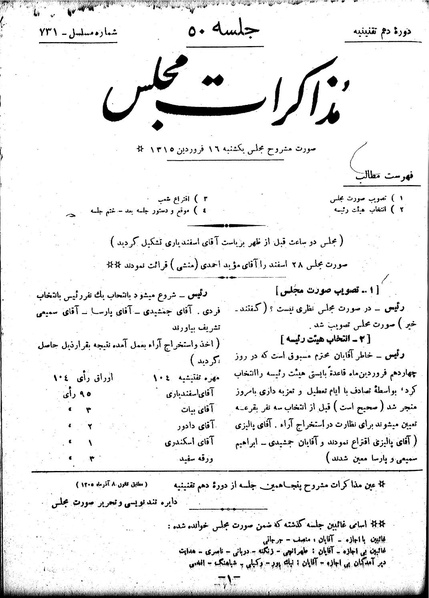 دورهٔ دهم تقنینیه
جلسه ۵۰
شماره مسلسل - ۷۳۱
مذاکرات مجلس
صورت مشروح مجلس یکشنبه ۱۶ فروردین ۱۳۱۵ ※
فهرست مطالب
۱ ) تصویب صورت مجلس
۲ ) انتخاب هیئت رئیسه
۳ ) اقتراع شعب
۴ ) موقع و دستور جلسه بعد - ختم جلسه
( مجلس دو ساعت قبل از ظهر بریاست آقای اسفندیاری تشکیل گردید )
صورت مجلس ۲۸ اسفند را آقای مؤید احمدی (منشی) قرائت نمودند ※※
[ ۱ - تصویب صورت مجلس ]
رئیس - در صورت مجلس نظری نیست ؟ (گفتند.
خیر ) صورت مجلس تصویب شد.
[ ۲ - انتخاب هیئت رئیسه ]
رئیس - خاطر آقایان محترم مسبوق است که در روز
چهاردهم فروردین‌ماه قاعدة بایستی هیئت رئیسه را انتخاب
کرد بواسطهٔ تصادف با ایام تعطیل و تعزیه داری بامروز
منجر شد (صحیح است) قبل از انتخاب سه نفر بقرعه
تعیین میشوند برای نظارت در استخراج آراء. آقای پالیزی
( آقای پالیزی اقتراع نمودند و آقایان جمشیدی - ابراهیم
سمیعی و پارسا معین شدند )
رئیس - شروع میشود بانتخاب یك نفر رئیس بانتخاب
فردی. آقای جمشیدی - آقای پارسا - آقای سمیعی
تشریف بیاورند
( اخذ و استخراج آراء بعمل آمده نتیجه بقرار ذیل حاصل
گردید )
مهره تفتیشیه ۱۰۴ اوراق رأی ۱۰۴
آقای اسفندیاری ۹۵ رأی
آقای بیات ۳ »
آقای دادور ۲ »
آقای اسکندری ۱ »
ورقه سفید ۳ »
※ عین مذاکرات مشروح پنجاهمین جلسه از دورهٔ دهم تقنینیه (مطابق قانون ۸ آذرماه ۱۳۰۵)
دایره تندنویسی و تحریر صورت مجلس
※※ اسامی غائبین جلسه گذشته که ضمن صورت مجلس خوانده شده :
غائبین با اجازه - آقایان : منصف - جرجانی
غائبین بی اجازه - آقایان : طهرانچی - زنگنه - دربانی - ناصری - هدایت
دیر آمدگان بی اجازه - آقایان : نیك پور - وکیلی - شباهنگ - افخمی
-۱-